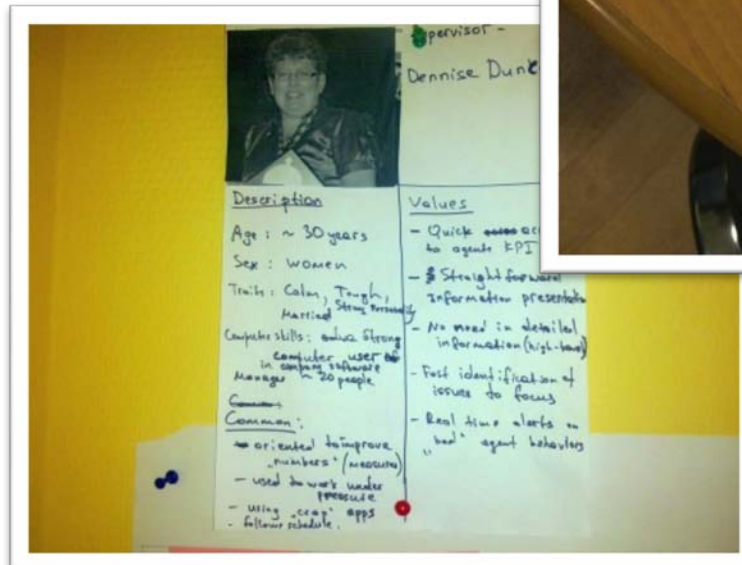 Supervisor -
Dennise Dunc
Description
Age : ~ 30 years
Sex : women
Traits : Calm, Tough,
Married Strong Personality
Computer skills : Strong
computer user
in company software
Manager ~ 20 people
Common :
- oriented to improve
"numbers" (measures)
- used to work under
pressure
- using "crap" apps
- follows schedule.
Values
- Quick acc
to agents KPI
- Straight forward
Information presentation
- No need in detailed
information (high-level)
- Fast identification of
issues to focus
- Real time alerts on
"bad" agent behaviors